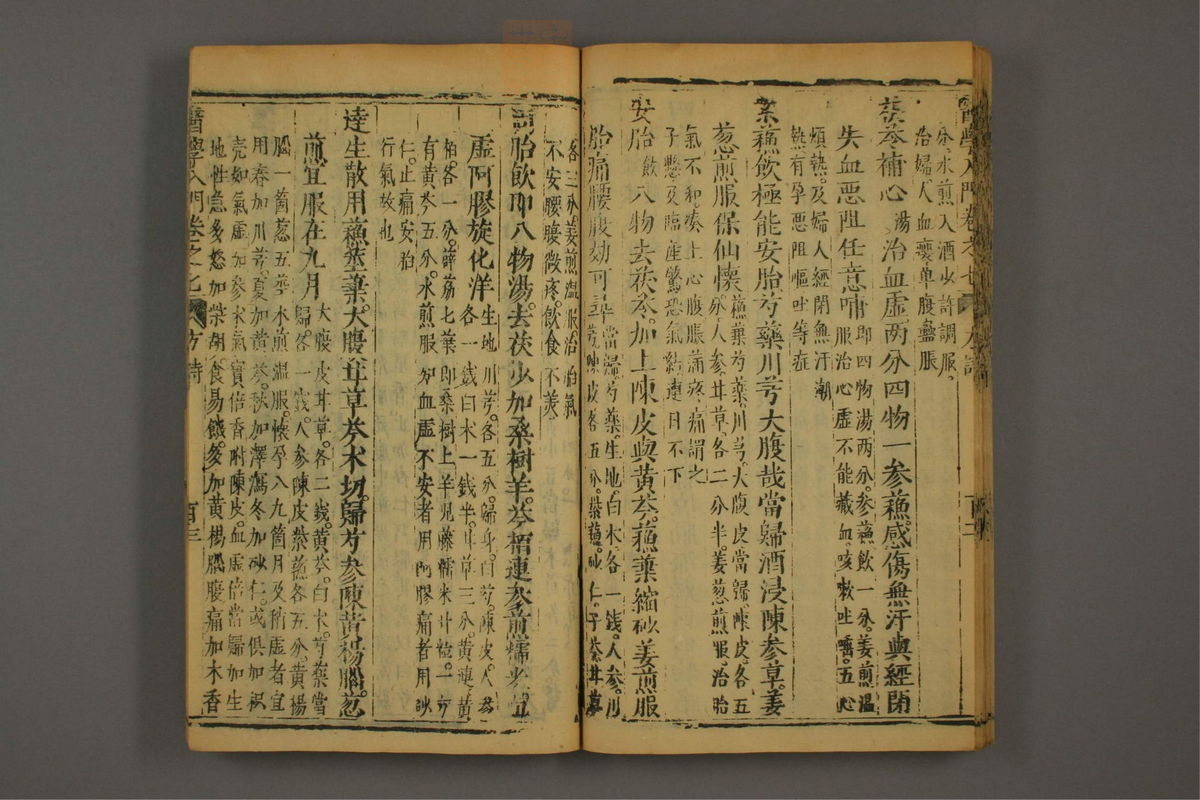 醫學入門卷之七
分水煎入酒少許調服
治婦人血虛單腹蠱脹
茯苓補心湯治血虛两分四物一參蘇感傷無汗與經閉
失血惡阻任意啃即四物湯两分參蘇飲一分姜煎温
服治心虛不能藏血咳嗽吐五心
煩熱及婦人經閉無汗潮
熱有孕惡阻嘔吐等症
紫蘇飲極能安胎芍藥川芎大腹哉當歸酒浸陳參草姜
葱煎服保仙懷蘇葉芍藥川芎大腹皮當歸陳皮各五
分人參甘草各二分半姜葱煎服治胎
氣不和凑上心腹脹滿疼痛謂之
子懸及臨產驚恐氣結連日不下
安胎飲八物去茯苓加上陳皮與黄芩蘇葉縮砂姜煎服
胎痛腰腹効可尋當歸芍藥生地白术各一錢人參川
芎陳皮各五分紫蘇砂仁子芩甘草
各三分姜煎温服治胎氣
不安腰腹微疼飲食不美
胎飲即八物湯去茯沙加桑樹羊芩栢連參煎糯米宜
虛阿膠旋化洋生地川芎各五分歸身白芍陳皮人參
各一錢白术一錢半甘草三分黄連黄
栢各一分薜荔七葉即桑樹上羊兒藤糯米廿粒一方
有黄芩五分水煎服如血虛不安者用阿膠痛者用砂
仁止痛安胎
行氣故也
達生散用蘇莖葉大腹甘草參术切歸芍參陳黄楊腦葱
煎宜服在九月大腹皮甘草各二錢黄芩白术芍藥當
歸各一錢人參陳皮紫蘇各五分黄楊
腦一箇葱五莖水煎温服懷孕八九箇月及稍虛者宜
用春加川芎夏加黄芩秋加澤瀉冬加砂仁或俱加枳
壳如氣虛加參术氣實倍香附陳皮血虛倍當歸加生
地性急多怒加柴胡食易饑多加黄楊腦腹痛加木香
醫學入門卷之七 方詩 百三